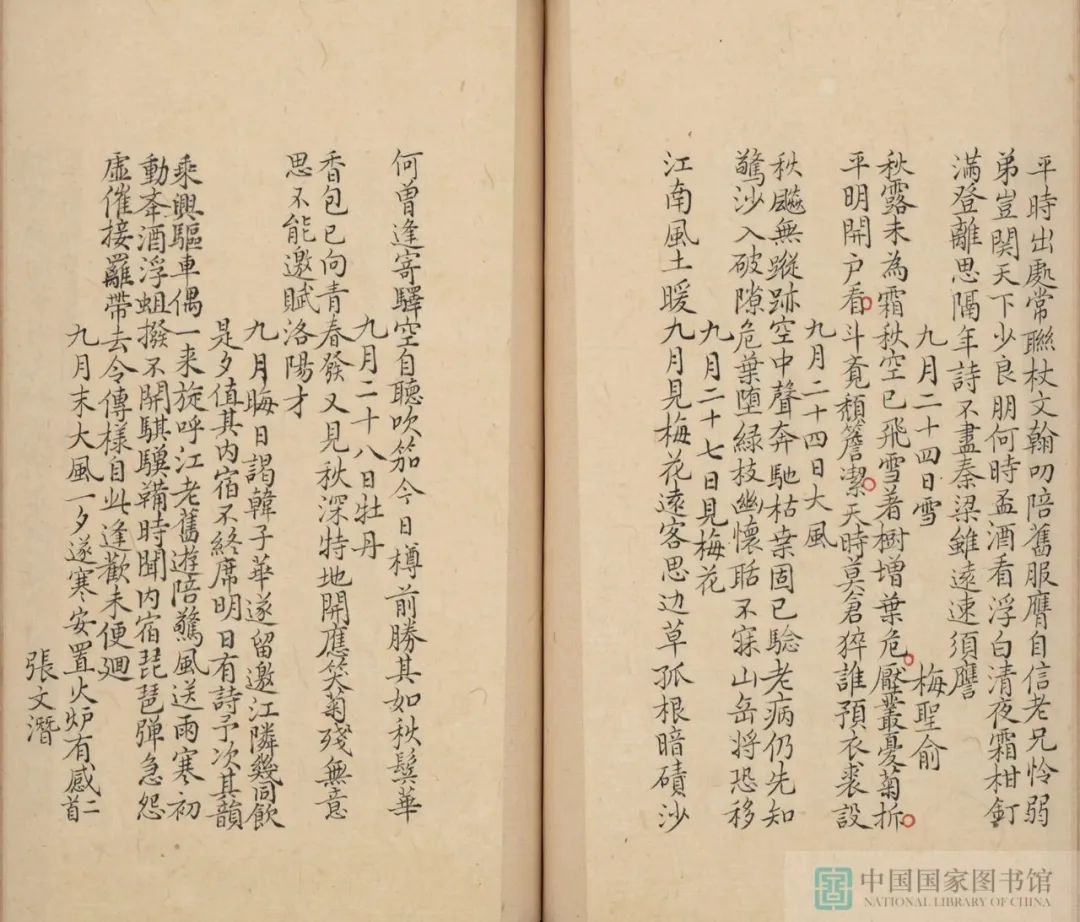 平時出處常聯杖文翰叨陪舊服膺自信老兄怜弱
弟豈関天下少良朋何時盃酒看浮白清夜霜柑釘
满登離思隔年詩不盡秦梁雖遠速須譍
九月二十四日雪 梅聖俞
秋露未為霜秋空已飛雪著樹增葉危壓叢憂菊折
平明開户看斗覔頹簷潔天時莫倉猝誰預衣裘設
九月二十四日大風
秋飈無蹤跡空中聲奔馳枯葉固已騐老病仍先知
驚沙入破隙危葉墮緑枝幽懷聒不寐山岳将恐移
九月二十七日見梅花
江南風土暖九月見梅花遠客思边草孤根暗磧沙
何曾逢寄驛空自聽吹笳今日樽前勝其如秋鬓華
九月二十八日牡丹
香包已向青春發又見秋深特地開應笑菊殘無意
思不能邀賦洛陽才
九月晦日謁韓子華遂留邀江隣幾同飲
是夕值其内宿不終席明日有詩予次其韻
乘興驅車偶一来旋呼江老舊遊陪驚風送雨寒初
動夲酒浮蛆撥不開騏驥鞴時聞内宿琵琶弹急怨
虛催接䍦帶去令傳樣自此逢歡未便廻
九月末大風一夕遂寒安置火炉有感二首
張文潛
中国国家图书馆
NATIONAL LIBRARY OF CHINA